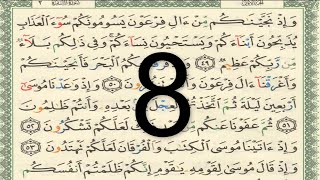 وَإِذْ نَجَّيْنَٰكُم مِّنْ ءَالِ فِرْعَوْنَ يَسُومُونَكُمْ سُوٓءَ ٱلْعَذَابِ
يُذَبِّحُونَ أَبْنَآءَكُمْ وَيَسْتَحْيُونَ نِسَآءَكُمْ وَفِى ذَٰلِكُم بَلَآءٌ
مِّن رَّبِّكُمْ عَظِيمٌ ٤٩ ٱلْبَحْرَ فَأَنجَيْنَٰكُمْ
وَأَغْرَقْنَآ ءَالَ فِرْعَوْنَ ٥٠ وَإِذْ وَٰعَدْنَا مُوسَىٰٓ
أَرْبَعِينَ لَيْلَةً ثُمَّ ٱتَّخَذْتُمُ ٱلْعِجْلَ مِنۢ بَعْدِهِۦ وَأَنتُمْ ظَٰلِمُونَ
٥١ ثُمَّ عَفَوْنَا عَنكُم لَعَلَّكُمْ تَشْكُرُونَ ٥٢
وَإِذْ ءَاتَيْنَا مُوسَى ٱلْكِتَٰبَ وَٱلْفُرْقَانَ لَعَلَّكُمْ تَهْتَدُونَ ٥٣
وَإِذْ قَالَ مُوسَىٰ لِقَوْمِهِۦ يَٰقَوْمِ إِنَّكُمْ ظَلَمْتُمْ أَنفُسَكُم
8